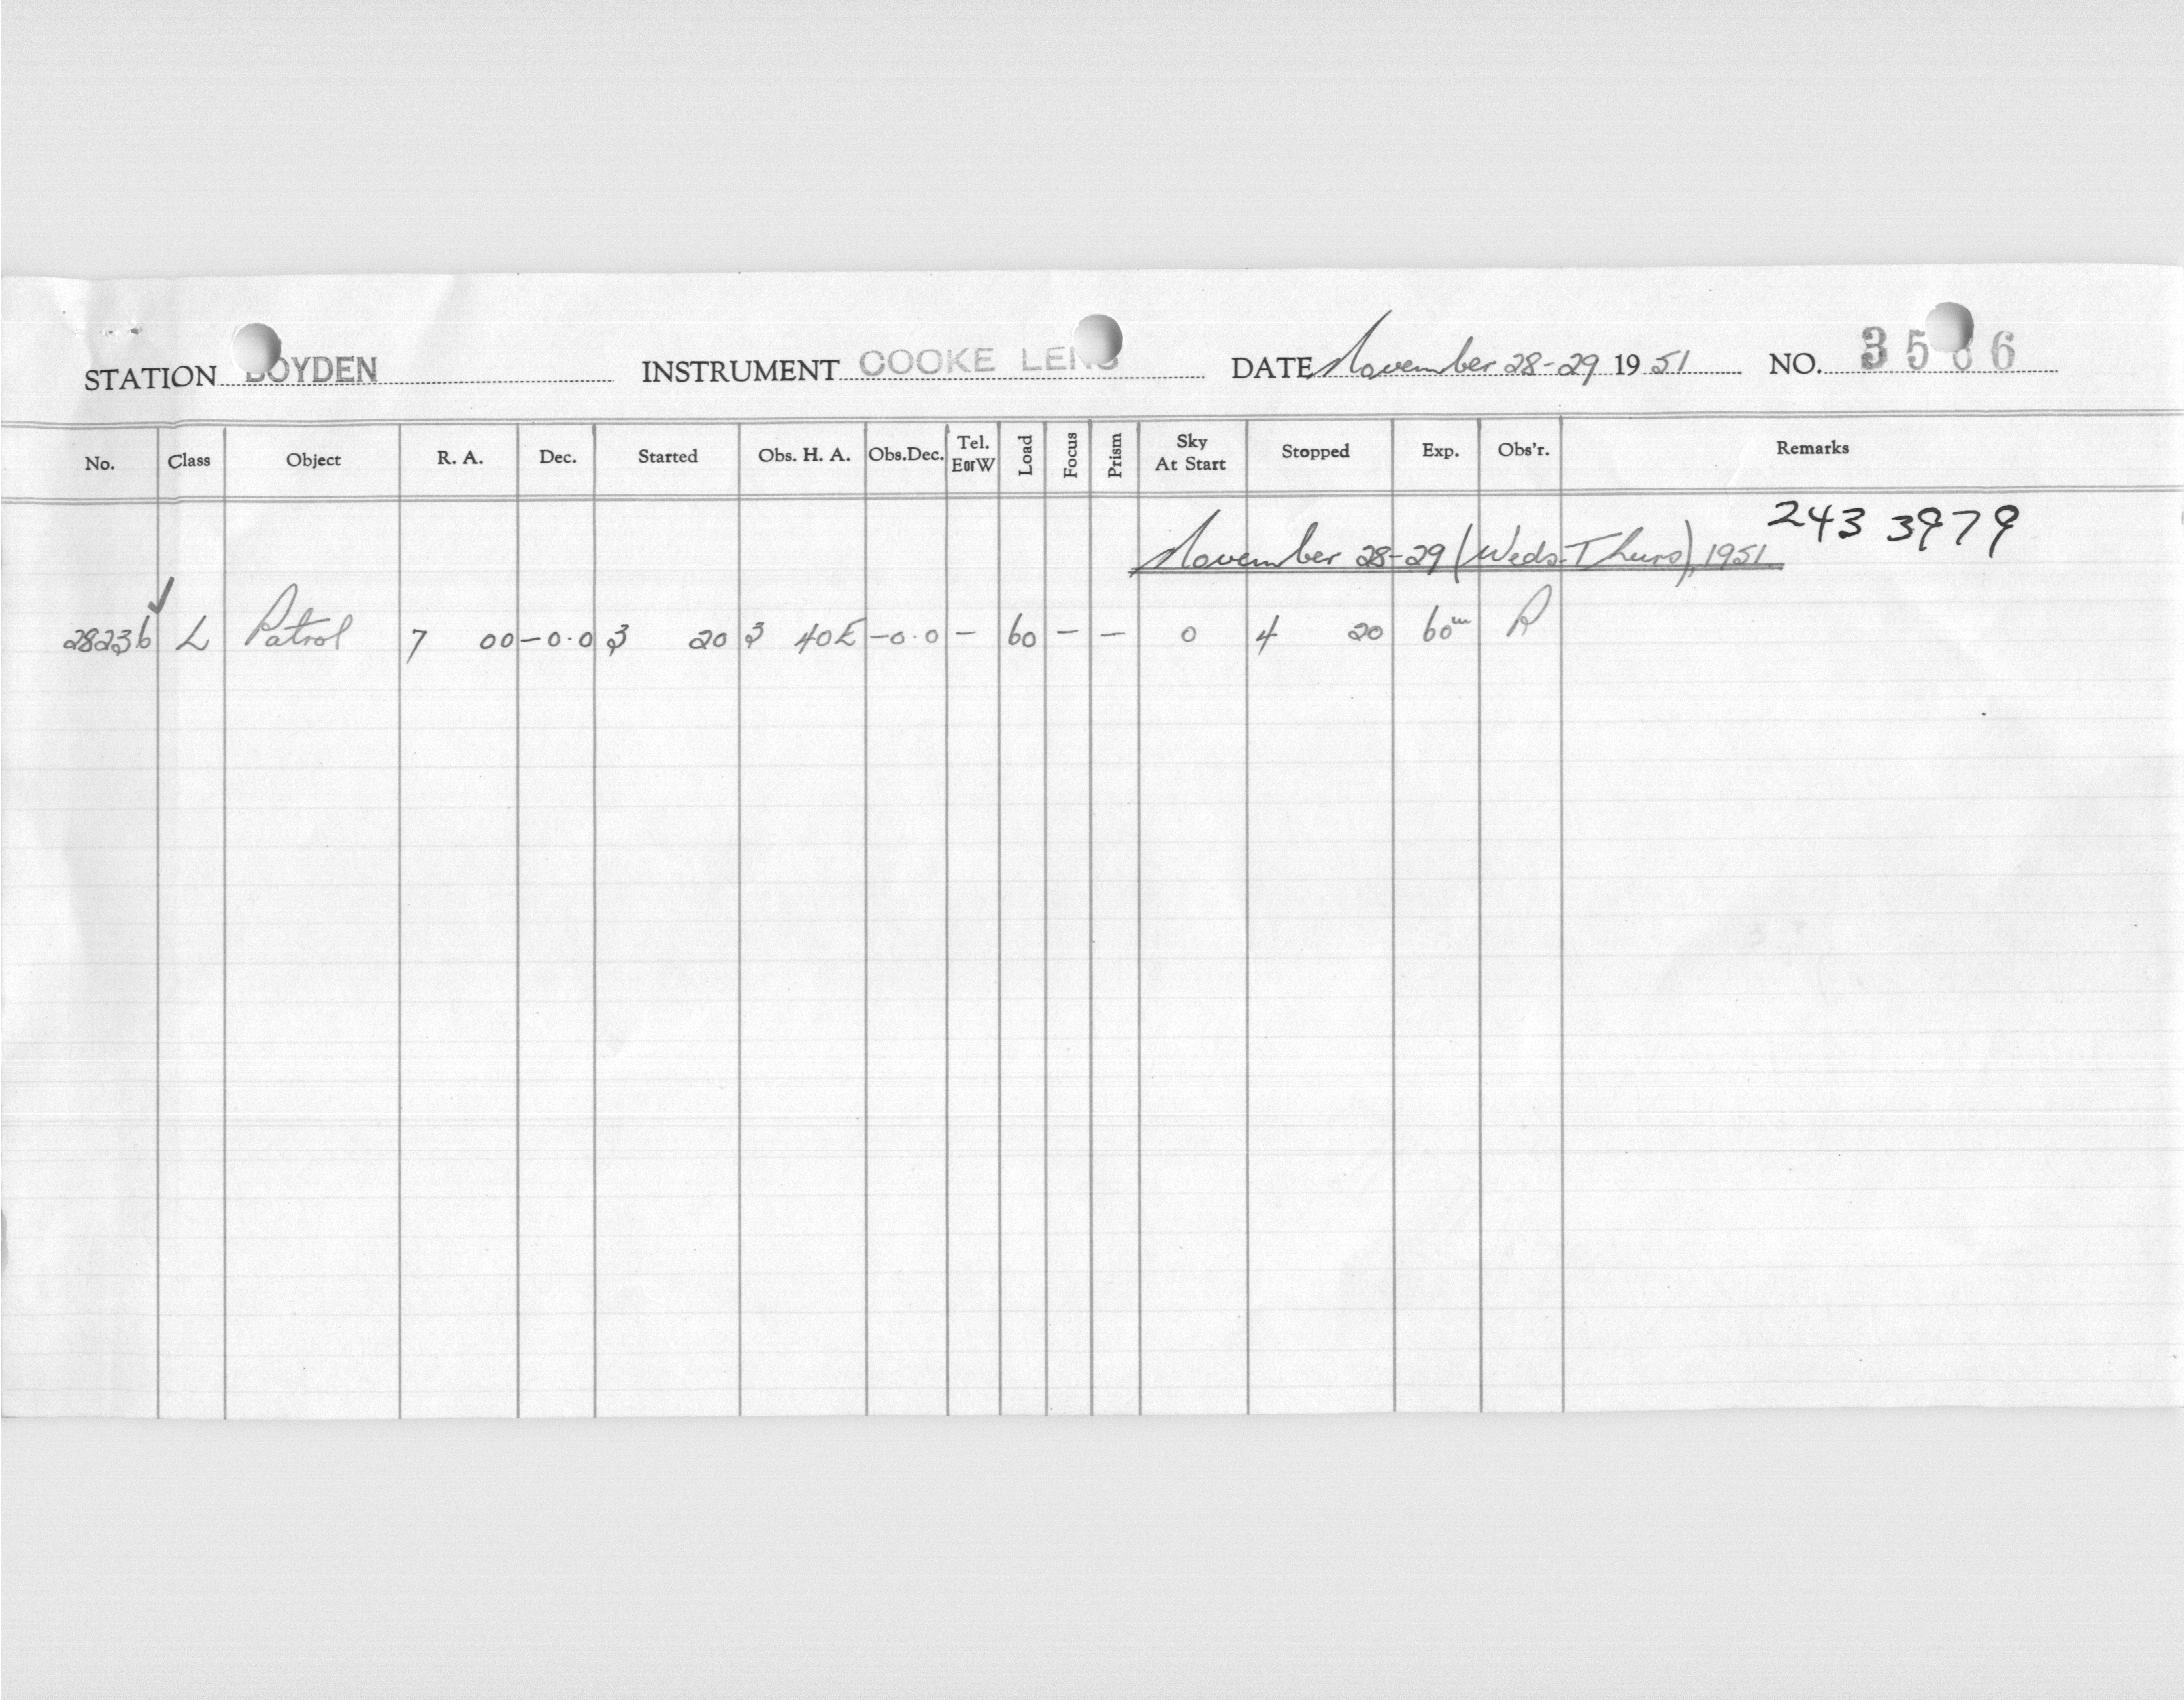 STATION BOYDEN INSTRUMENT COOKE LENS DATE November 28-29 1951 NO.
No. Class Object R. A. Dec. Started Obs. H. A. Obs.Dec. Tel. E or W Load Focus Prism Sky At Start Stopped Exp. Obs'r. Remarks
243 3979
November 28-29 (Weds-Thurs), 1951
28236 ✓ L Patrol 7 00 -0.0 3 20 3 40E -0.0 - 60 - - 0 4 20 60m R